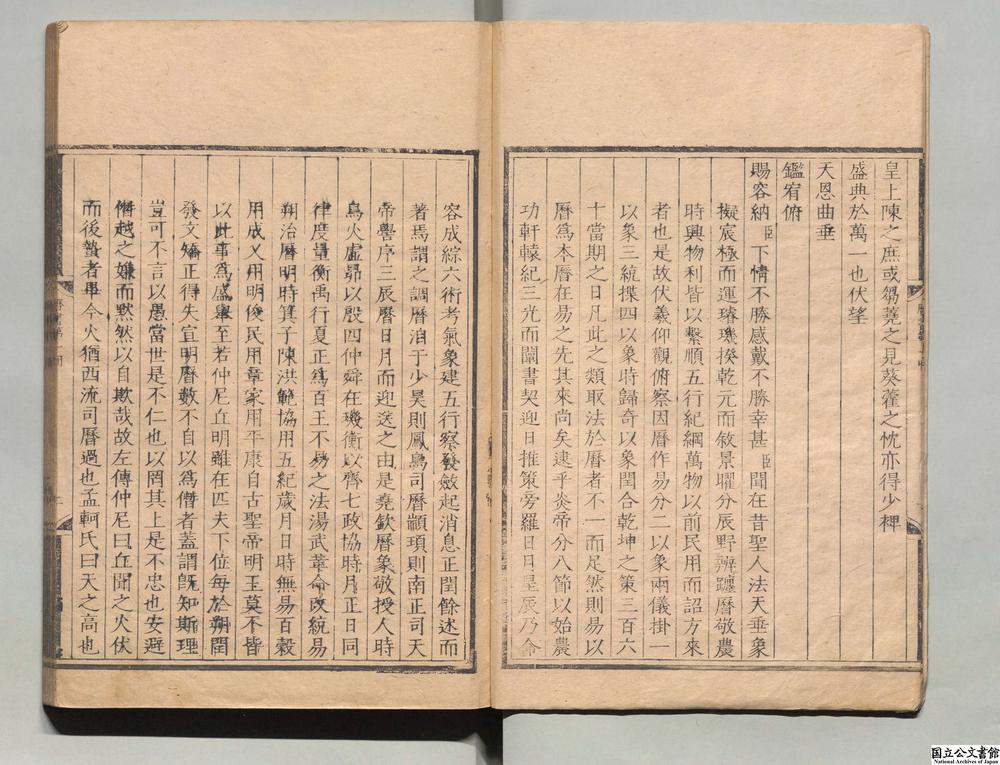 皇上陳之庶或芻蕘之見葵藿之忱亦得少裨
盛典於萬一也伏望
天恩曲垂
鑑宥俯
賜容納臣下情不勝感戴不勝幸甚臣聞在昔聖人法天垂象
擬宸極而運璿璣揆乾元而敘景曜分辰野辨躔曆敬農
時興物利皆以繫順五行紀綱萬物以前民用而詔方來
者也是故伏羲仰觀俯察因曆作易分二以象兩儀掛一
以象三統揲四以象時歸奇以象閏合乾坤之策三百六
十當期之日凡此之類取法於曆者不一而足然則易以
曆為本曆在易之先其來尚矣逮乎炎帝分八節以始農
功軒轅紀三光而闡書契迎日推策旁羅日月星辰乃命
容成綜六術考氣象建五行察發斂起消息正閏餘述而
著焉謂之調曆洎于少昊則鳳鳥司曆顓頊則南正司天
帝嚳序三辰曆日月而迎送之由是堯欽曆象敬授人時
鳥火虛昴以殷四仲舜在璣衡以齊七政協時月正日同
律度量衡禹行夏正為百王不易之法湯武革命改統易
朔治曆明時箕子陳洪範協用五紀歲月日時無易百穀
用成乂用明俊民用章家用平康自古聖帝明王莫不皆
以此事為盛舉至若仲尼丘明雖在匹夫下位每於朔閏
發文矯正得失宣明曆數不自以為僭者蓋謂旣知斯理
豈可不言以愚當世是不仁也以罔其上是不忠也安避
僭越之嫌而默然以自欺哉故左傳仲尼曰丘聞之火伏
而後蟄者畢今火猶西流司曆過也孟軻氏曰天之高也
国立公文書館
National Archives of Japan